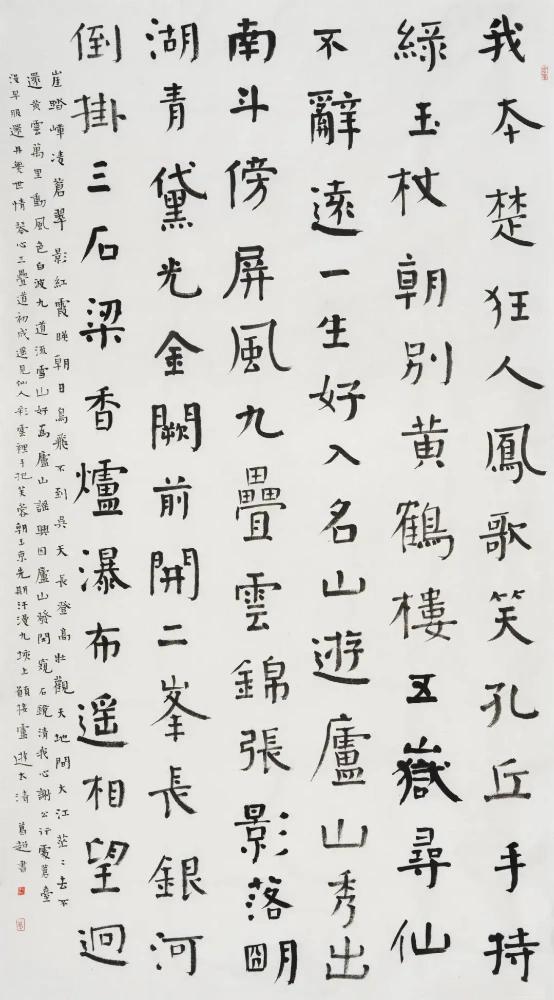 我本楚狂人鳳歌笑孔丘手持
綠玉杖朝別黄鶴樓五嶽尋仙
不辭遠一生好入名山遊廬山秀出
南斗傍屏風九疊雲錦張影落明
湖青黛光金闕前開二峯長銀河
倒掛三石梁香爐瀑布遥相望迴
崖踏嶂凌蒼翠影紅霞暎朝日鳥飛不到吳天長登高壯觀天地間大江茫〻去不
還黄雲萬里動風色白波九道流雪山好為廬山謡興因廬山發閑窺石鏡清我心謝公行處蒼臺
沒早服還丹無世情琴心三疊道初成遥見仙人彩雲裡手把芙蓉朝玉京先期汗漫九垓上願接盧遊太清 超書